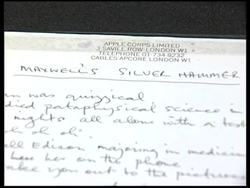 APPLE CORPS LIMITED
3 SAVILE ROW LONDON W1
TELEPHONE 01-734 8232
CABLES APCORE LONDON W1
MAXWELL'S SILVER HAMMER
n was quizzical
died pataphysical science in
nights all alone with a test
oh oh oh
ll Edison majoring in medicine
her on the phone
ake you out to the pictures